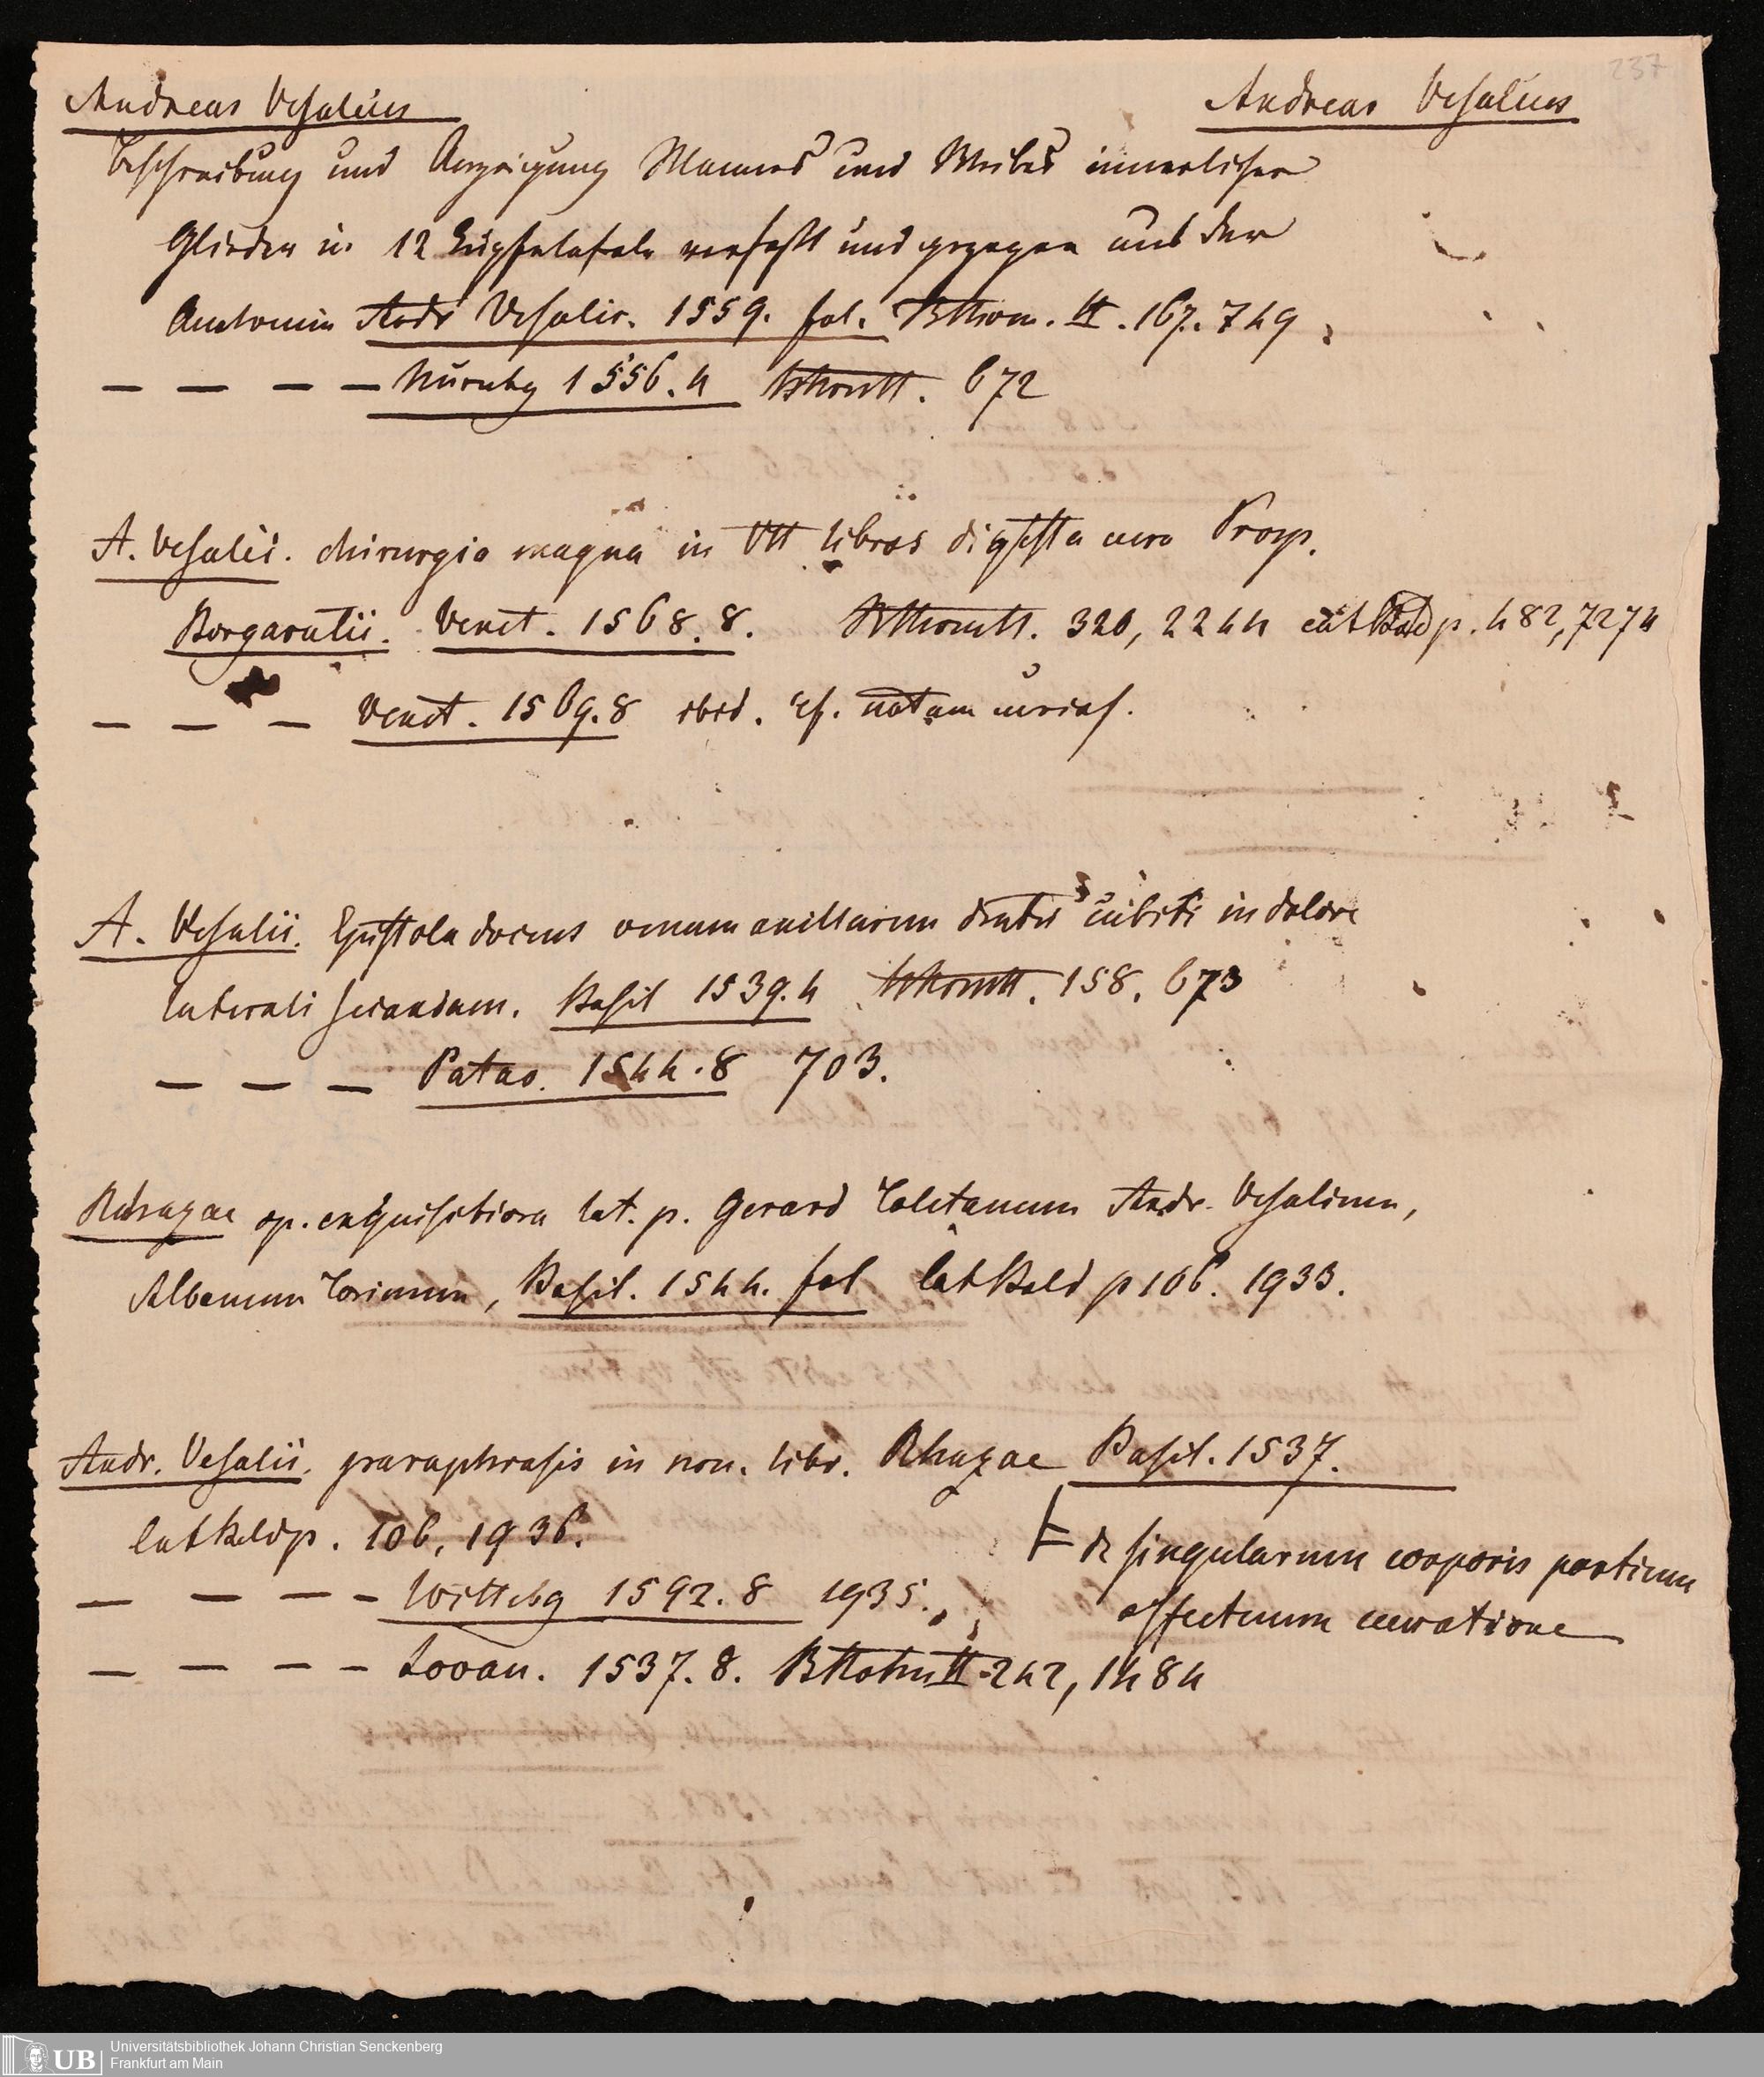 237
Andreas Vesalius Andreas Vesalius
Beschreibung und Anzeigung Mannes und Weibes innerlicher
Glieder in 12 Kupfertafeln verfaßt und gezogen aus der
Anatomie Andr Vesalii. 1559. fol. II. 167. 749
— — — — Nürnbg 1556. 4 672
A. Vesalii. chirurgia magna in VII libros digesta cura Prosp.
Borgarutii. Venet. 1568. 8. 320, 2244 p. 482, 7274
— — — Venet. 1569. 8 ibid. cf. notam
A. Vesalii. Epistola docens venam axillarem dextri cubiti in dolore
laterali secandam. Basil 1539. 4 158. 673
— — — Patav. 1544. 8 703.
Rhazae op. exquisitiora lat. p. Gerard Toletanum Andr. Vesalium,
Albanum Torinum, Basil. 1544. fol p 106. 1933.
Andr. Vesalii. paraphrasis in non. libr. Rhazae Basil. 1537.
p. 106. 1936.
de singularum corporis partium
— — — — Wittebg 1592. 8 1935.
affectuum curatione
— — — — Lovan. 1537. 8. II 242, 1484
UB Universitätsbibliothek Johann Christian Senckenberg
Frankfurt am Main